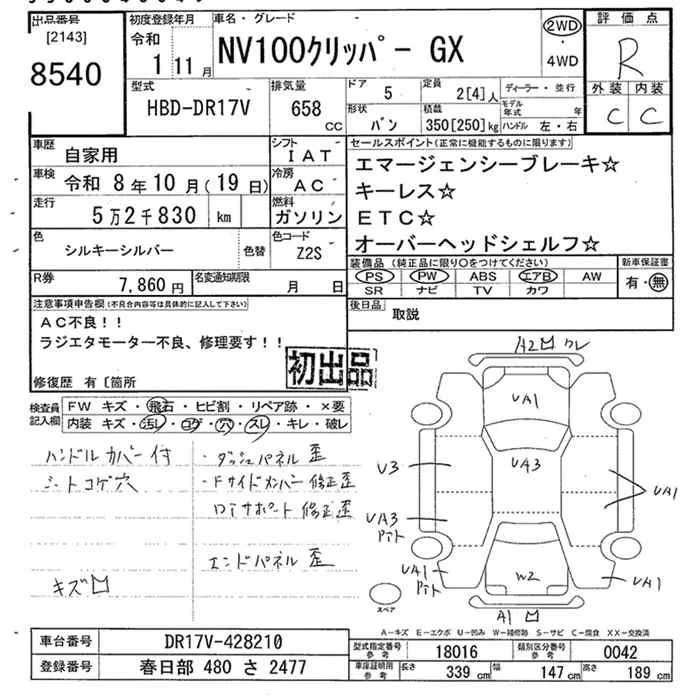 出品番号
[2143]
8540
初度登録年月
令和
1 11月
車名・グレード
NV100クリッパー GX
2WD
・
4WD
評価点
R
外装 内装
C C
型式
HBD-DR17V
排気量
658
CC
ドア
5
形状
バン
定員
2[4]人
積載
350[250]kg
ディーラー・並行
モデル年式 年
ハンドル 左・右
車歴
自家用
シフト
IAT
車検
令和 8年10月(19日)
冷房
AC
走行
5万2千830 km
燃料
ガソリン
色
シルキーシルバー
色替
色コード
Z2S
R券
7,860円
名変通知期限
月 日
セールスポイント(正常に機能するものに限ります)
エマージェンシーブレーキ☆
キーレス☆
ETC☆
オーバーヘッドシェルフ☆
装備品(純正品に限り○をつけてください)
PS PW ABS エアB AW
SR ナビ TV カワ
新車保証書
有・無
後日品
取説
注意事項申告欄(不具合内容等は具体的に記入して下さい)
AC不良!!
ラジエタモーター不良、修理要す!!
修復歴 有〔箇所
初出品
検査員
記入欄
FW キズ・飛石・ヒビ割・リペア跡・×要
内装 キズ・汚レ・コゲ・穴・スレ・キレ・破レ
ハンドルカバー付
シートコゲ穴
キズ凹
・ダッシュパネル 歪
・Fサイドメンバー 修正歪
ロアサポート 修正歪
エンドパネル 歪
A2凹 ワレ
UA1
UA3
U3
UA3
UA1
UA1
UA1
W2
A1凹
スペア
A-キズ E-エクボ U-凹み W-補修跡 S-サビ C-腐食 XX-交換済
車台番号
DR17V-428210
登録番号
春日部 480 さ 2477
型式指定番号
参考
18016
類別区分番号
参考
0042
車庫証明用
参考
長さ
339 cm
幅
147 cm
高さ
189 cm